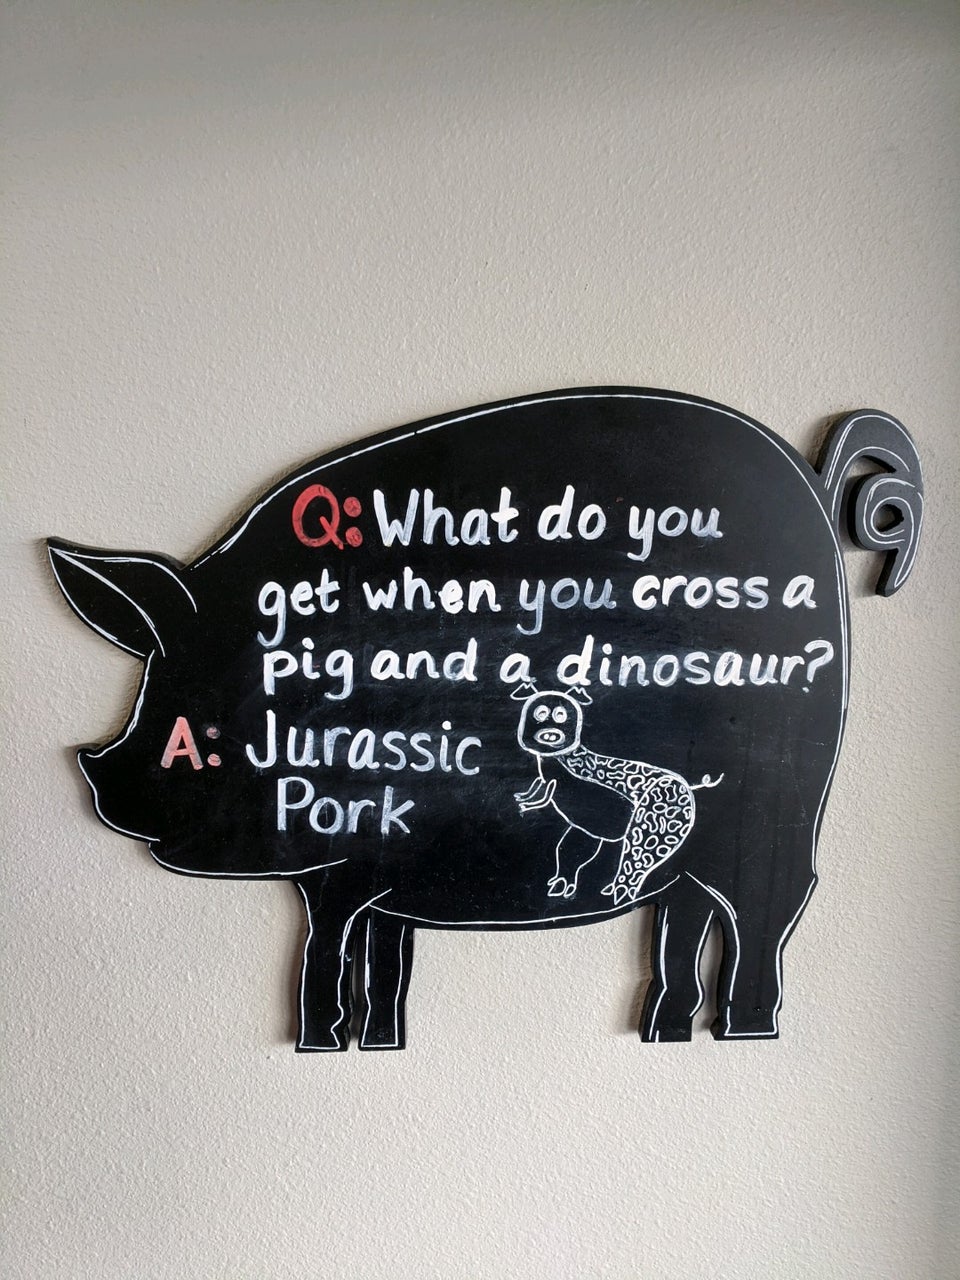 Q: What do you
get when you cross a
pig and a dinosaur?
A: Jurassic
Pork